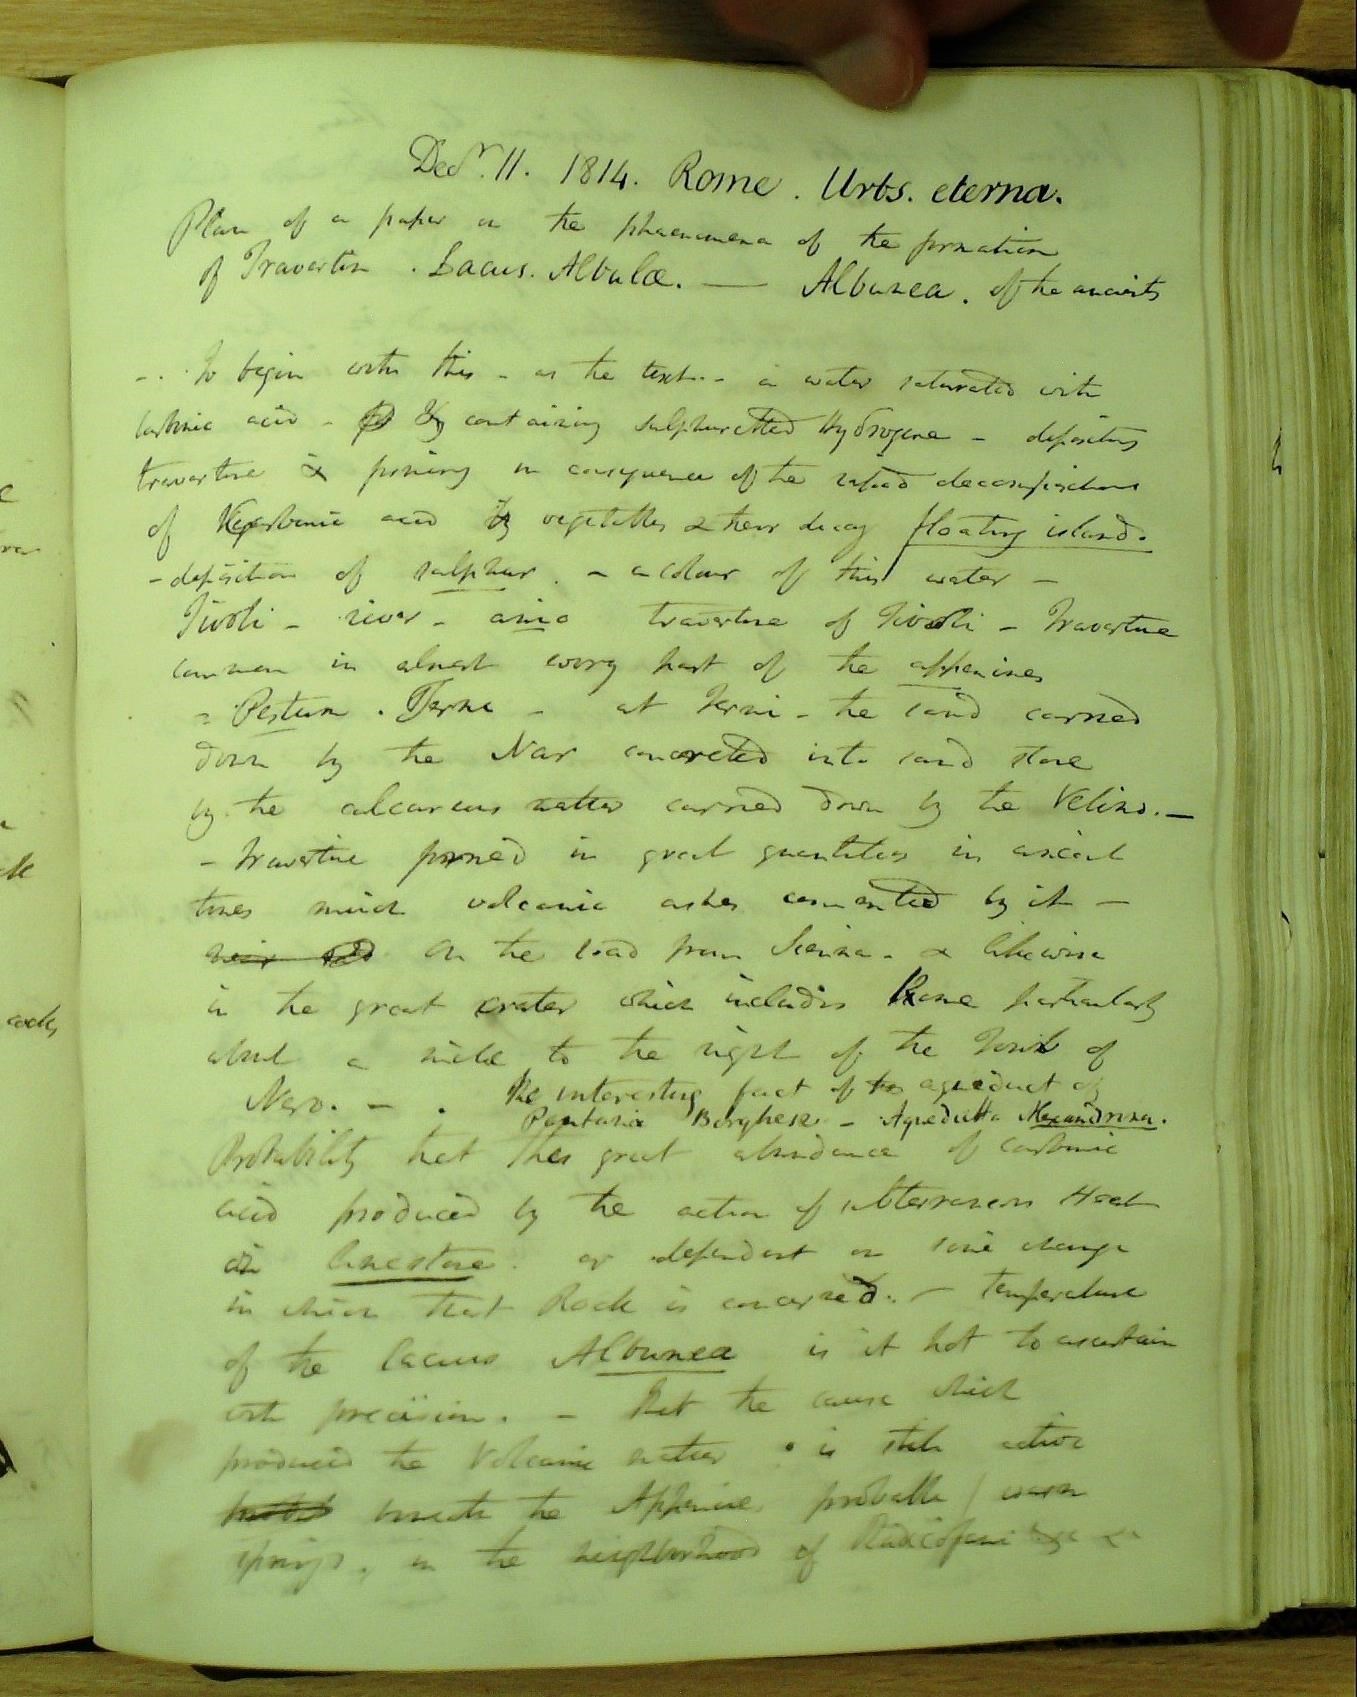 Decr. 11. 1814. Rome. Urbs. eterna.
Plan of a paper on the phaenomena of the formation
of Travertin. Lacus. Albulæ. — Albunea. of the ancients
-. to begin with this - as the text. - a water saturated with
carbonic acid - containing sulphuretted Hydrogene - depositing
travertine & forming in consequence of the rapid decomposition
of carbonic acid by vegetables & their decay floating islands.
- deposition of sulphur. - colour of this water -
Tivoli - river - anio travertine of Tivoli - Travertine
common in almost every part of the appenines
- Pestum. Terni - at Terni - the sand carried
down by the Nar concreted into sand stone
by the calcareous matter carried down by the Velino. —
- travertine formed in great quantities in ancient
times much volcanic ashes cemented by it —
On the road from Sienna. & likewise
in the great crater which includes Rome particularly
about a mile to the right of the Tomb of
Nero. - . The interesting fact of aqueduct of
Borghese - Aqueductus Alexandrina.
Probability that this great abundance of carbonic
acid produced by the action of subterraneous Heat
on limestone. or dependent on some change
in which that Rock is concerned. - temperature
of the lacus Albunea is it hot to ascertain
with precision. - That the cause which
produced the Volcanic matter is still active
beneath the Appenines probable / warm
springs. in the neighborhood of Radicofani